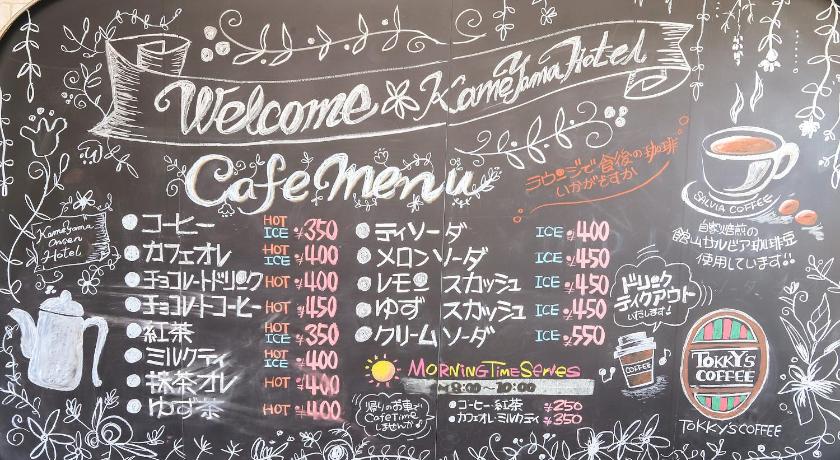 Welcome Kameyama Hotel
Cafe Menu
ラウンジで食後の珈琲
いかがですか
SALVIA COFFEE
自家焙煎の
館山サルビア珈琲豆
使用しています!!
Kameyama
Onsen
Hotel
コーヒー HOT ICE ¥350
カフェオレ HOT ICE ¥400
チョコレートドリンク HOT ¥400
チョコレートコーヒー HOT ¥450
紅茶 HOT ICE ¥350
ミルクティ HOT ICE ¥400
抹茶オレ HOT ¥400
ゆず茶 HOT ¥400
ティソーダ ICE ¥400
メロンソーダ ICE ¥450
レモンスカッシュ ICE ¥450
ゆずスカッシュ ICE ¥450
クリームソーダ ICE ¥550
ドリンク
テイクアウト
いたします!
COFFEE
TOKKY'S
COFFEE
TOKKY'S COFFEE
MORNING TIME Serves
8:00~10:00
コーヒー・紅茶 ¥250
カフェオレ・ミルクティ ¥350
帰りのお車で
Cafe Time
しませんか